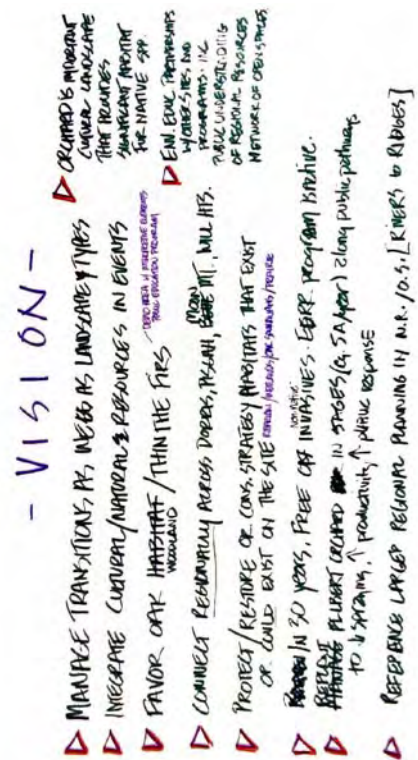 - VISION -
▷ MANAGE TRANSITIONS AS WELL AS LANDSCAPE TYPES
▷ INTEGRATE CULTURAL/NATURAL RESOURCES IN EVENTS
▷ FAVOR OAK HABITAT / THIN THE FIRS
WOODLAND
DEMO AREA w/ INTERPRETIVE ELEMENTS
PUBLIC EDUCATION PROGRAM
▷ CONNECT REGIONALLY ACROSS DOPPS, PISGAH, MT., WILL HTS.
MOON
▷ PROTECT/RESTORE OR CONS. STRATEGY HABITATS THAT EXIST
OR COULD EXIST ON THE SITE
▷ IN 30 YEARS, FREE OF INVASIVES. EDRR PROGRAM IS ACTIVE.
non-native
▷ REPLANT FILBERT ORCHARD IN STAGES (e.g. 5A/year) along public pathways
to ↓ spraying, ↑ productivity, ↑ public response
▷ REFERENCE LARGER REGIONAL PLANNING IN N.R./O.S. [RIVERS to RIDGES]
▷ ORCHARD IS IMPORTANT
CULTURAL LANDSCAPE
THAT PROVIDES
SIGNIFICANT HABITAT
FOR NATIVE SPP.
▷ ENV. EDUC. PARTNERSHIPS
W/ OTHER SITES AND
PROGRAMS. INC.
PUBLIC UNDERSTANDING
OF REGIONAL RESOURCES
NETWORK OF OPEN SPACES